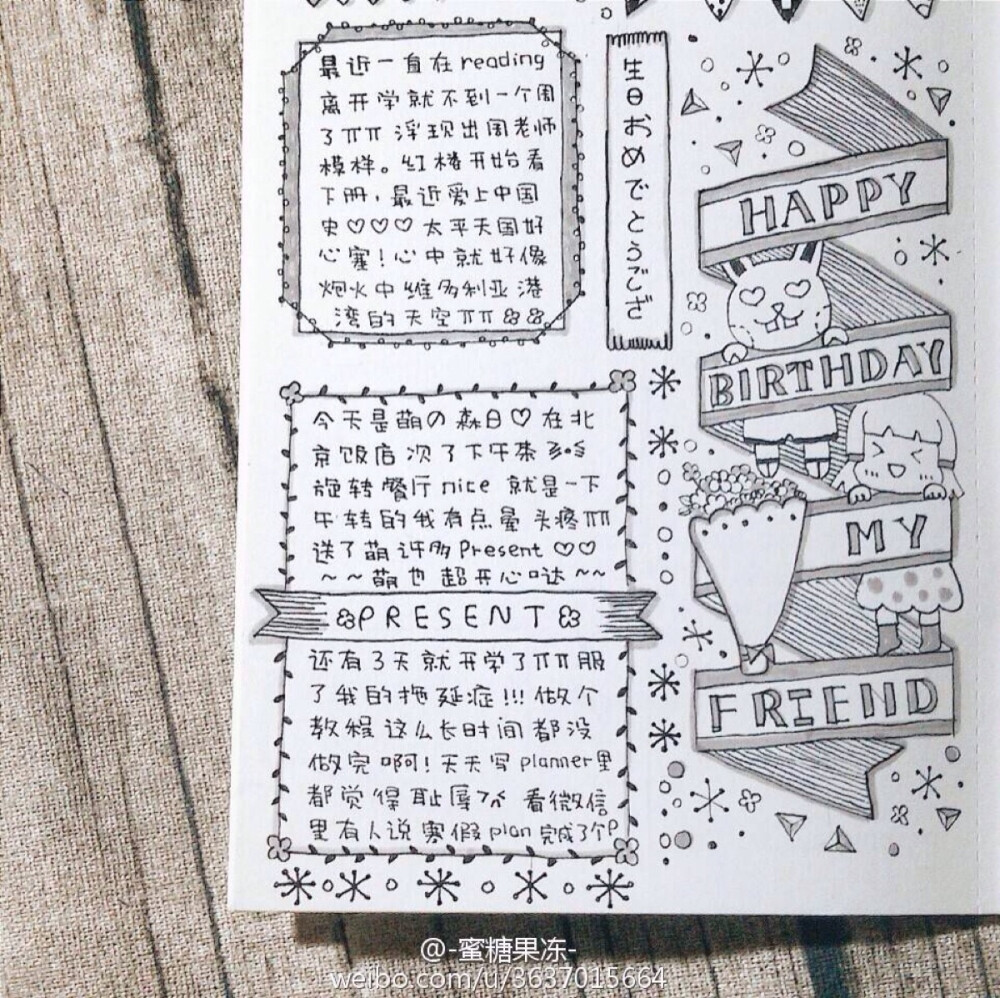 最近一直在reading
离开学就不到一个周
了ππ 浮现出国老师
模样。红楼开始看
下册,最近爱上中国
史♡♡♡ 太平天国好
心塞!心中就好像
炮火中维多利亚港
湾的天空ππ
生日おめでとうござ
今天是萌の森日♡在北
京饭店次了下午茶
旋转餐厅nice 就是一下
午转的我有点晕头疼ππ
送了萌许多Present ♡♡
~~萌也超开心哒~~
PRESENT
还有3天就开学了ππ服
了我的拖延症!!!做个
教程这么长时间都没
做完啊!天天写planner里
都觉得耻辱 看微信
里有人说寒假plan完成了个P
HAPPY
BIRTHDAY
MY
FRIEND
@-蜜糖果冻-
weibo.com/u/3637015664